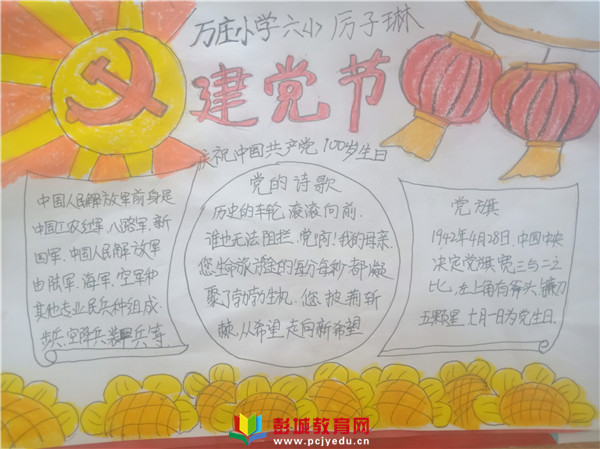 万庄小学六小厉子琳
建党节
庆祝中国共产党100岁生日
中国人民解放军前身是
中国工农红军、八路军、新
四军、中国人民解放军
由陆军、海军、空军种
其他专业民兵种组成.
步兵、空降兵、装甲兵等.
党的诗歌
历史的车轮,滚滚向前.
谁也无法阻拦.党啊!我的母亲.
您生命旅途的每分每秒都凝
聚了勃勃生机.您披荆斩
棘,从希望走向新希望
党旗
1942年4月28日.中国中央
决定党旗宽三与二之
比,左上角有斧头镰刀
五颗星.七月一日为党生日.
彭城教育网
www.pcjyedu.cn